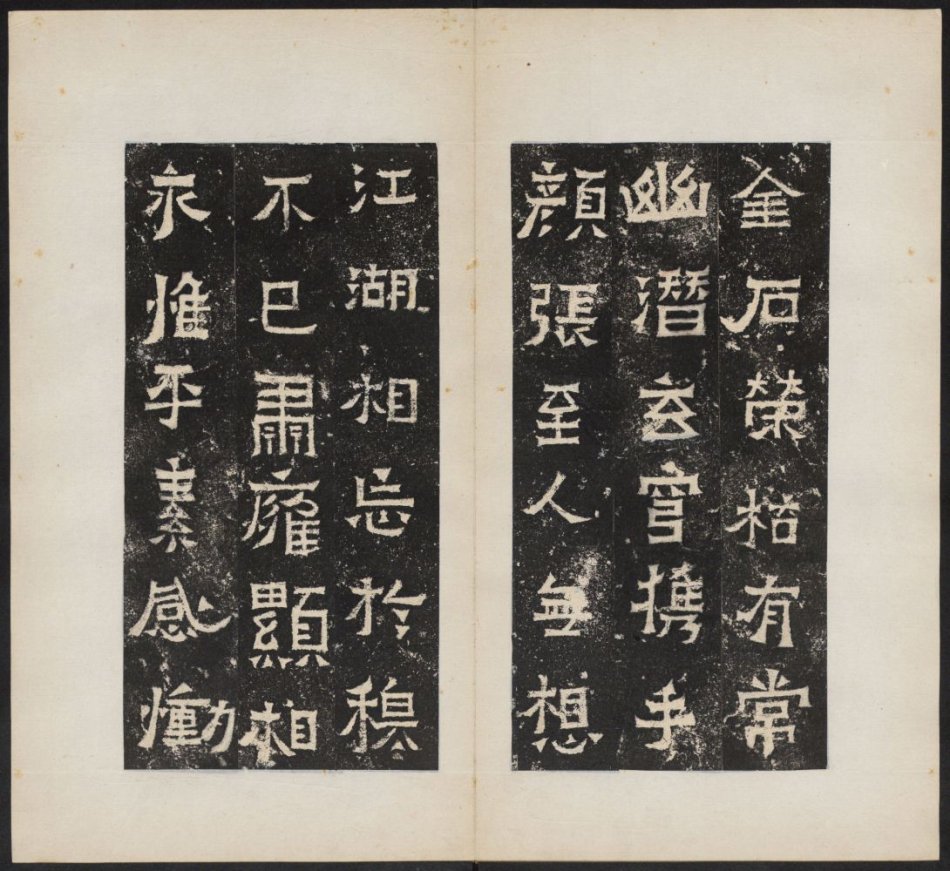 金石榮枯有常
幽潛玄穹携手
顔張至人無想
江湖相忘於穆
不已肅雍顯相
永惟平素感慟